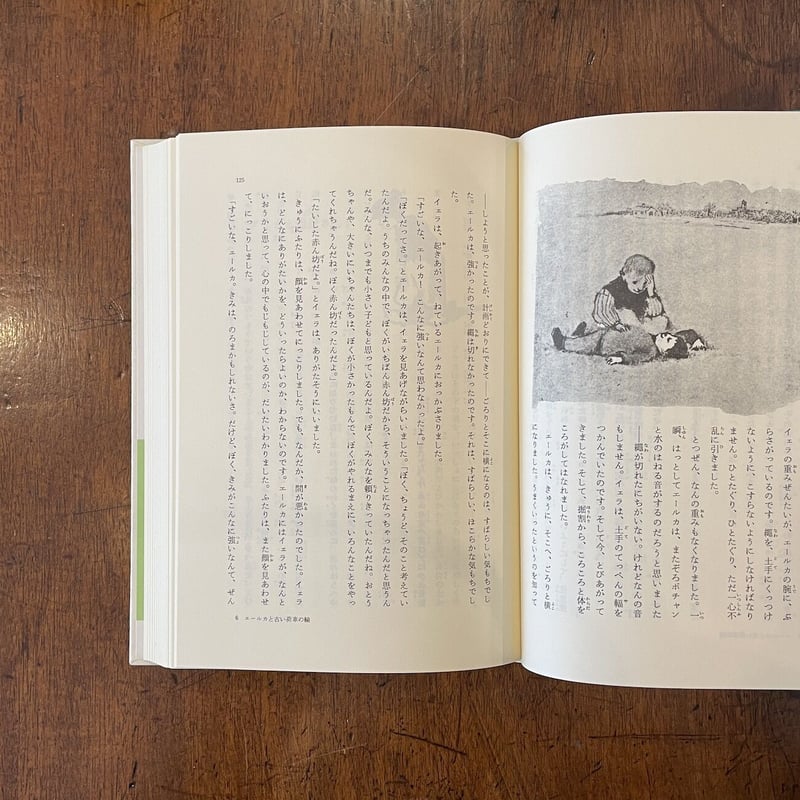 イェラの重みぜんたいが、エールカの腕に、ぶ
らさがっているのです。繩を、土手にくっつけ
ないように、こすらないようにしなければなり
ません。ひとたぐり、ひとたぐり、ただ一心不
乱に引きました。
とつぜん、なんの重みもなくなりました。一
瞬、はっとしてエールカは、またぞろボチャン
と水のはねる音がするのだろうと思いました
――繩が切れたにちがいない。けれどなんの音
もしません。イェラは、土手のてっぺんの
つかんでいたのです。そして今、とびあがって
きました。そして、掘割から、ころころと体を
ころがしてはなれました。
エールカは、きゅうに、そこへ、ごろりと横
になりました。うまくいったというのを知って
――しようと思ったことが、計画どおりにできて――ごろりとそこに横になるのは、すばらしい気もちでし
た。エールカは、強かったのです。繩は切れなかったのです。それは、すばらしい、ほこらかな気もちでし
た。
イェラは、起きあがって、ねているエールカにおっかぶさりました。
「すごいな、エールカ！　こんなに強いなんて思わなかったよ。」
「ぼくだってさ。」とエールカは、イェラを見あげながらいいました。「ぼく、ちょうど、そのこと考えてい
たんだよ。うちのみんなの中で、ぼくがいちばん赤ん坊だから、そういうことになっちゃったんだと思うん
だ。みんな、いつまでも小さい子どもと思っているんだよ。ぼく、みんなを頼りきっていたんだね。おとう
ちゃんや、大きいにいちゃんたちは、ぼくが小さかったもんで、ぼくがやれるまえに、いろんなことをやっ
てくれちゃうんだね。ぼく赤ん坊だったんだよ。」
「たいした赤ん坊だよ。」とイェラは、ありがたそうにいいました。
きゅうにふたりは、顔を見あわせてにっこりしました。でも、なんだか、間が悪かったのでした。イェラ
は、どんなにありがたいかを、どういったらよいのか、わからないのです。エールカにはイェラが、なんと
いおうかと思って、心の中でもじもじしているのが、だいたいわかりました。ふたりは、また顔を見あわせ
て、にっこりしました。
「すごいな、エールカ。きみは、のろまかもしれないさ。だけど、ぼく、きみがこんなに強いなんて、ぜん
125
6　エールカと古い荷車の輪